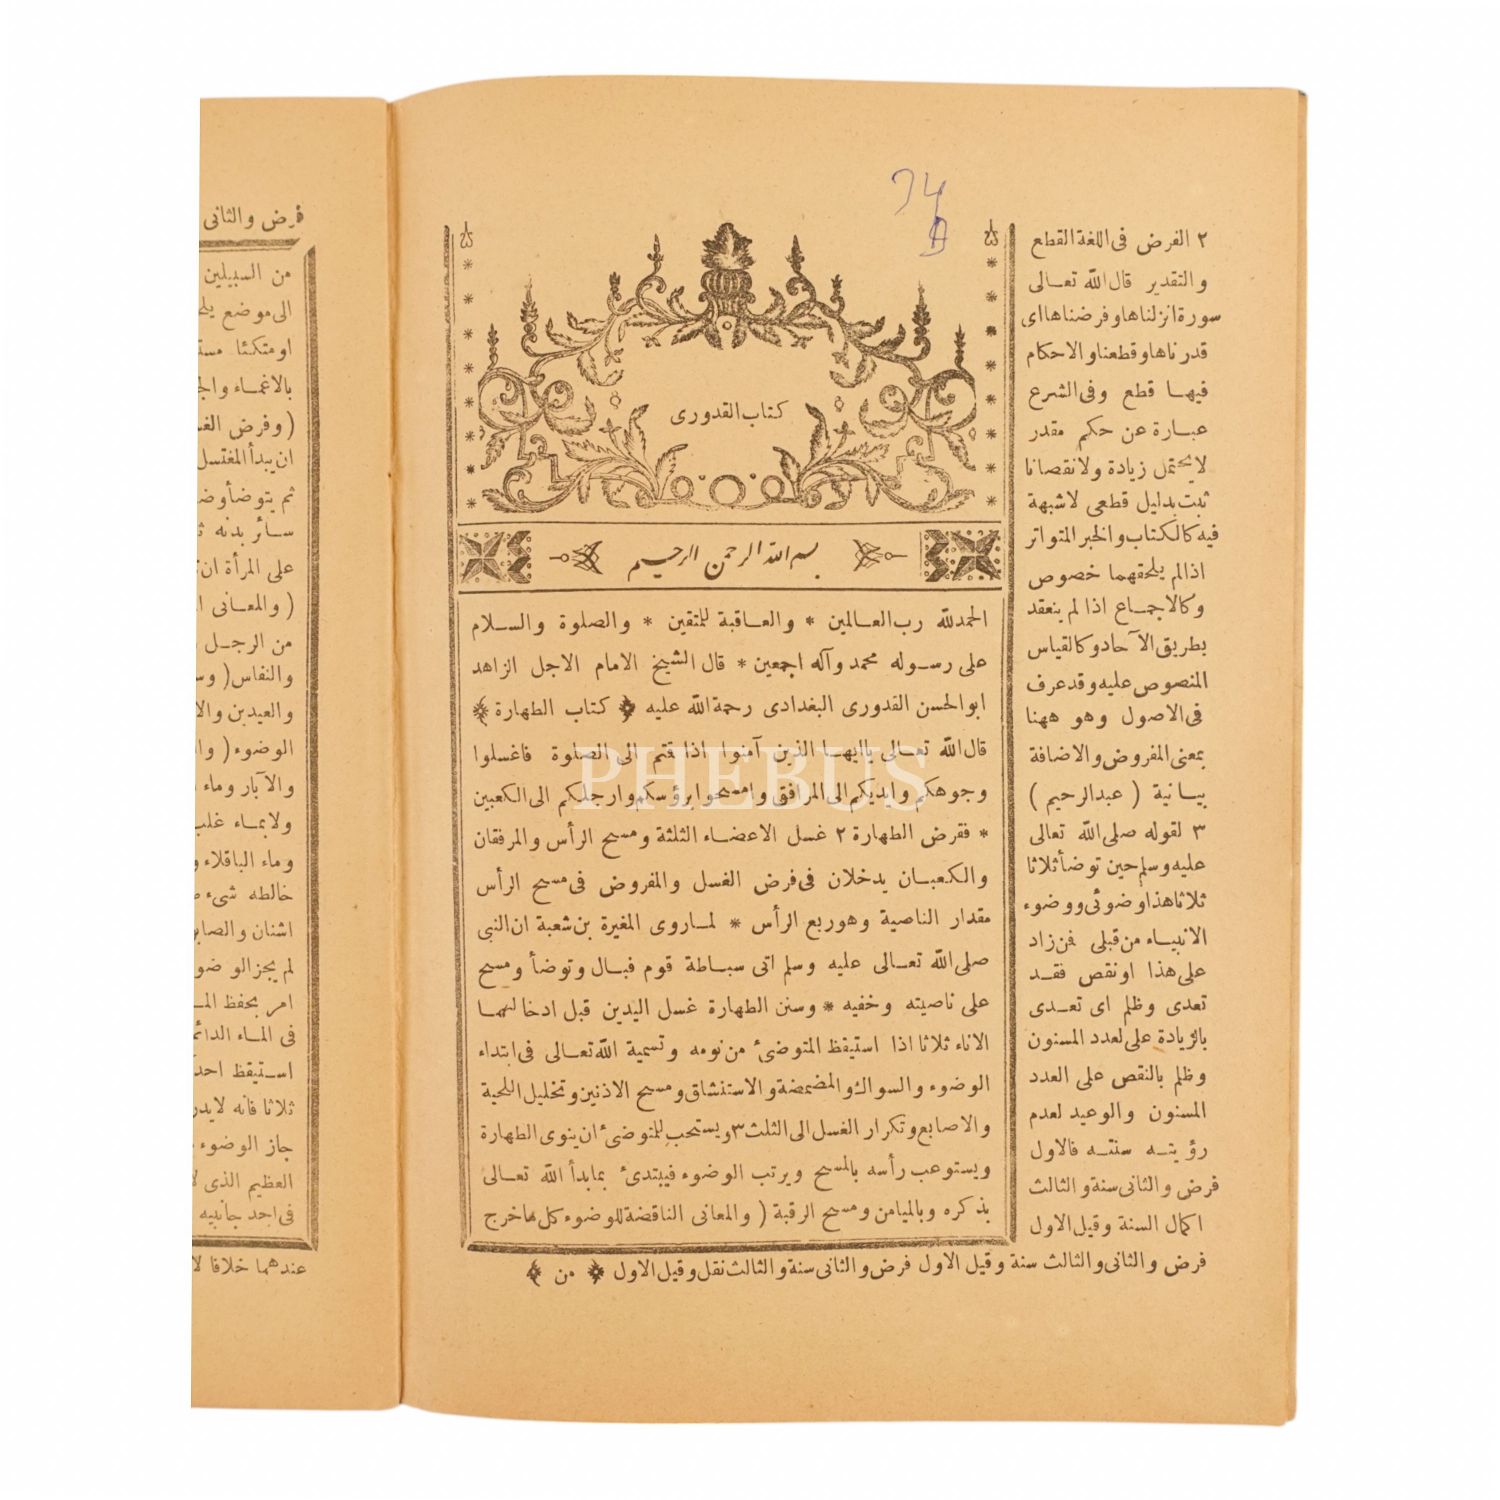 كتاب القدورى
بسم الله الرحمن الرحيم
الحمدلله رب العالمين * والعاقبة للمتقين * والصلوة والسلام
على رسوله محمد وآله اجمعين * قال الشيخ الامام الاجل الزاهد
ابوالحسن القدورى البغدادى رحمة الله عليه ﴿ كتاب الطهارة ﴾
قال الله تعالى ياايها الذين آمنوا اذا قتم الى الصلوة فاغسلوا
وجوهكم وايديكم الى المرافق وامسحوا برؤسكم وارجلكم الى الكعبين
* ففرض الطهارة ٢ غسل الاعضاء الثلثة ومسح الرأس والمرفقان
والكعبان يدخلان فى فرض الغسل والمفروض فى مسح الرأس
مقدار الناصية وهو ربع الرأس * لما روى المغيرة بن شعبة ان النبى
صلى الله تعالى عليه وسلم اتى سباطة قوم فبال وتوضأ ومسح
على ناصيته وخفيه * وسنن الطهارة غسل اليدين قبل ادخالهما
الاناء ثلاثا اذا استيقظ المتوضئ من نومه وتسمية الله تعالى فى ابتداء
الوضوء والسواك والمضمضة والاستنشاق ومسح الاذنين وتخليل اللحية
والاصابع وتكرار الغسل الى الثلث ٣ ويستحب للمتوضئ ان ينوى الطهارة
ويستوعب رأسه بالمسح ويرتب الوضوء فيبتدئ بمابدأ الله تعالى
بذكره وبالميامن ومسح الرقبة ( والمعانى الناقضة للوضوء كل ماخرج
٢ الفرض فى اللغة القطع
والتقدير قال الله تعالى
سورة انزلناها وفرضناها اى
قدرناها وقطعنا والاحكام
فيها قطع وفى الشرع
عبارة عن حكم مقدر
لا يحتمل زيادة ولا نقصانا
ثبت بدليل قطعى لاشبهة
فيه كالكتاب والخبر المتواتر
اذا لم يلحقهما خصوص
وكالاجماع اذا لم ينعقد
بطريق الآحاد وكالقياس
المنصوص عليه وقد عرف
فى الاصول وهو ههنا
بمعنى المفروض والاضافة
بيانية ( عبدالرحيم )
٣ لقوله صلى الله تعالى
عليه وسلم حين توضأ ثلاثا
ثلاثا هذا وضوئى ووضوء
الانبياء من قبلى فمن زاد
على هذا او نقص فقد
تعدى وظلم اى تعدى
بالزيادة على لعدد المسنون
وظلم بالنقص على العدد
المسنون والوعيد لعدم
رؤيته سنته فالاول
فرض والثانى سنة والثالث
اكمال السنة وقيل الاول
فرض والثانى والثالث سنة وقيل الاول فرض والثانى سنة والثالث نفل وقيل الاول ﴿ من ﴾
فرض والثانى
من السبيلين
الى موضع يلح
او متكئا مست
بالاغماء والج
( وفرض الغس
ان يبدأ المغتسل
ثم يتوضأ وض
سائر بدنه ث
على المرأة ان
( والمعانى ا
من الرجل
والنفاس ( وس
والعيدين والا
الوضوء ( وال
والآبار وماء
ولا بماء غلب
وماء الباقلاء و
خالطه شىء
اشنان والصابو
لم يجز الوضو
امر بحفظ الم
فى الماء الدائم
استيقظ احد
ثلاثا فانه لا يدر
جاز الوضوء
العظيم الذى لا
فى احد جانبيه
عندهما خلافا لا
PHEBUS